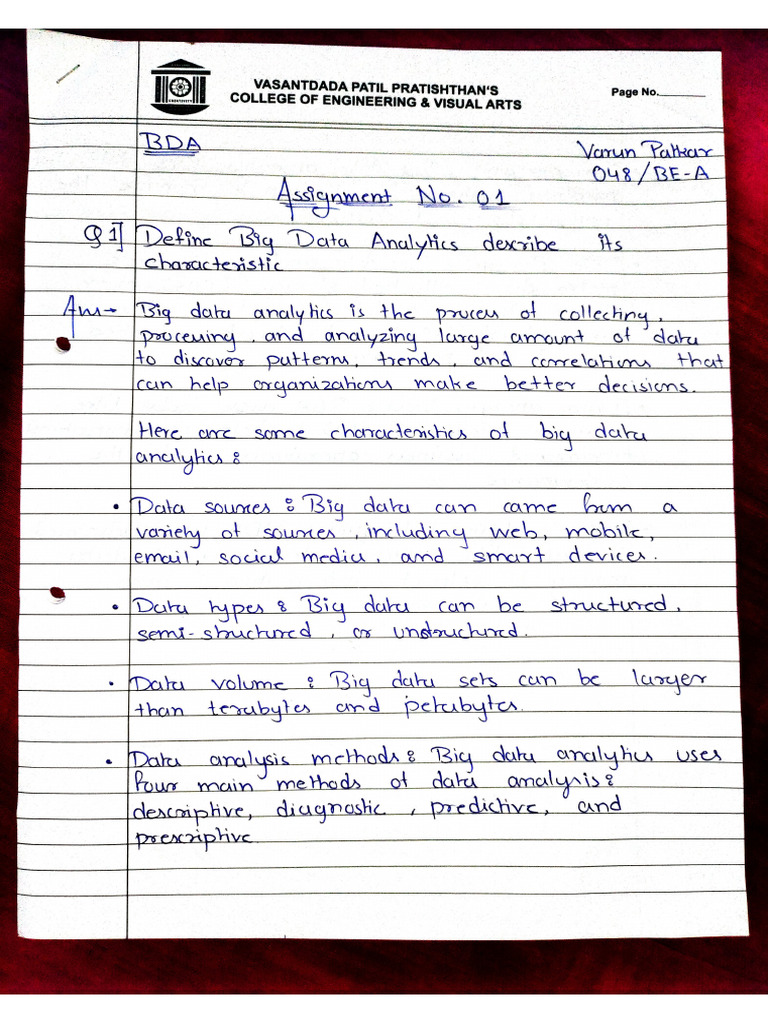 VASANTDADA PATIL PRATISHTHAN'S
COLLEGE OF ENGINEERING & VISUAL ARTS
Page No.________
BDA
Varun Patkar
048/BE-A
Assignment No. 01
Q1] Define Big Data Analytics describe its
characteristic
Ans→ Big data analytics is the process of collecting,
processing, and analyzing large amount of data
to discover patterns, trends, and correlations that
can help organizations make better decisions.
Here are some characteristics of big data
analytics:
• Data sources: Big data can came from a
variety of sources, including web, mobile,
email, social media, and smart devices.
• Data types: Big data can be structured,
semi-structured, or unstructured.
• Data volume: Big data sets can be larger
than terabytes and petabytes.
• Data analysis methods: Big data analytics uses
four main methods of data analysis:
descriptive, diagnostic, predictive, and
prescriptive